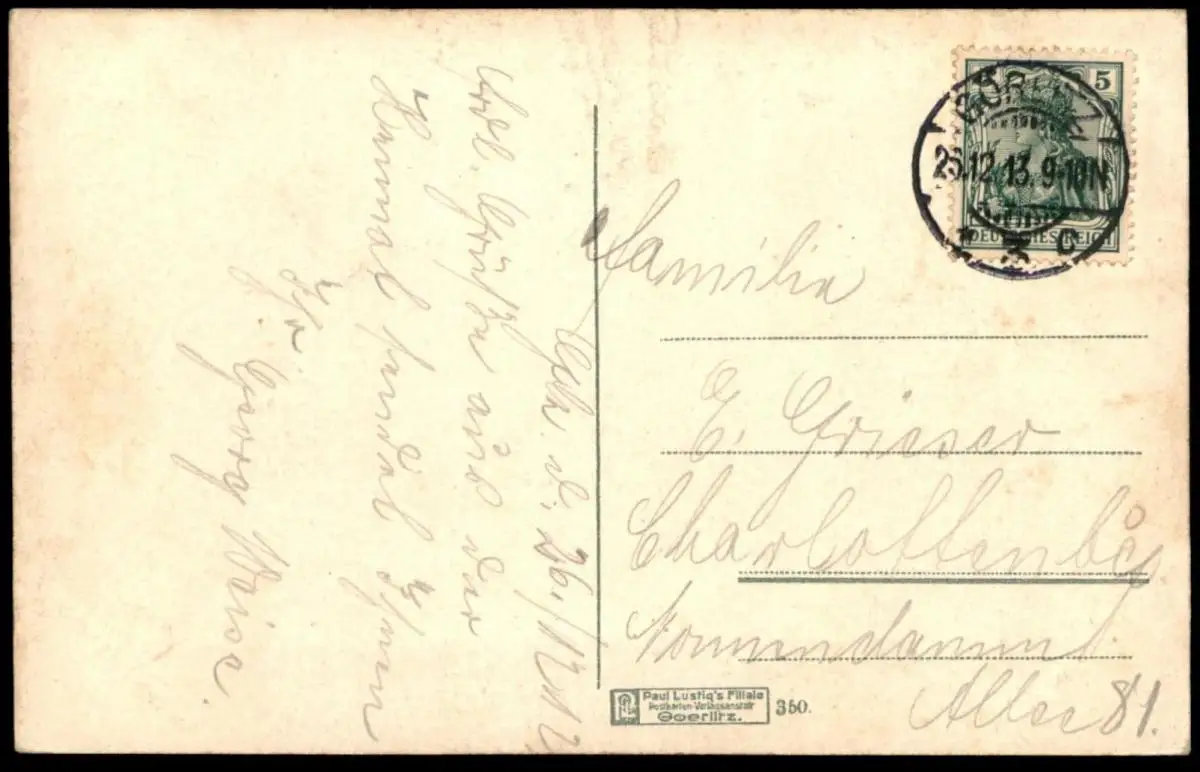 Görl. d. 26./12. 12
Hrzl. Grüße aus der
Heimat sendet Ihnen
Ihr Georg Weise.
GÖRLITZ
26.12.13. 9-10N
* 3 c
5
DEUTSCHES REICH
Familie
E. Grieser
Charlottenbg
Nonnendamm
Allee 81.
Paul Lustig's Filiale
Postkarten-Verlagsanstalt
Goerlitz.
350.